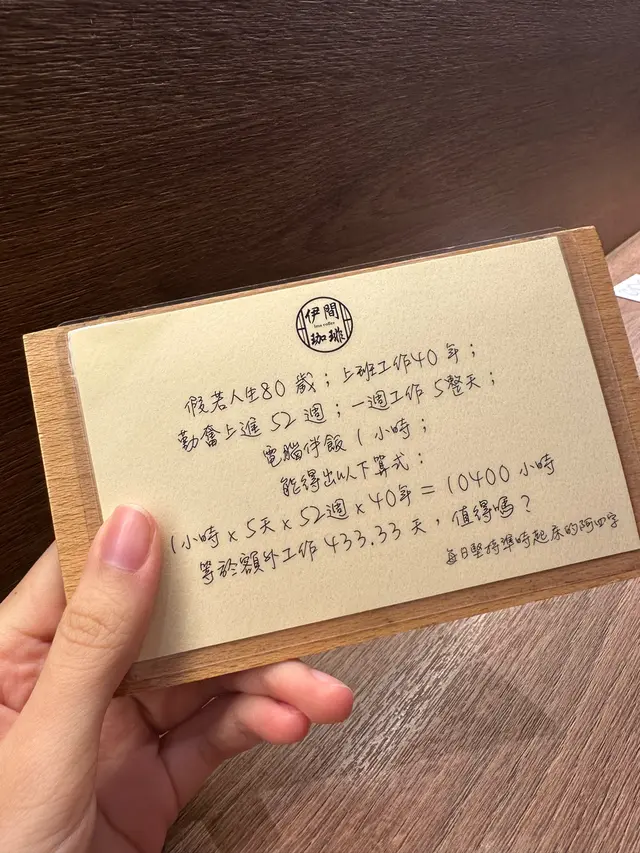 伊間
珈琲
假若人生80歲；上班工作40年；
勤奮上進52週；一週工作5整天；
電腦伴飯1小時；
能得出以下算式：
1小時×5天×52週×40年=10400小時
等於額外工作433.33天，值得嗎？
每日堅持準時起床的阿四字